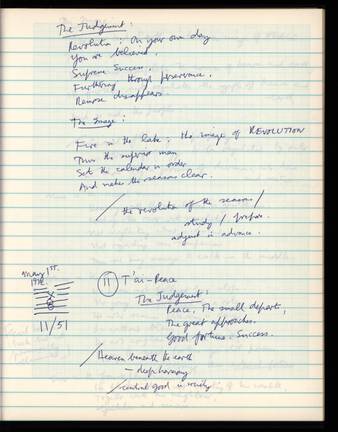 The Judgement:
Revolution: On your own day
You are believed.
Supreme Success,
Furthering through perseverance.
Remorse disappears.
The Image:
Fire in the lake: the image of REVOLUTION
Thus the superior man
Sets the calendar in order
And makes the seasons clear.
/ the revolution of the seasons /
study / prepare.
adjust in advance.
May 1st.
11/51
11 T'ai - Peace
The Judgement:
Peace. The small departs,
The great approaches.
Good fortune. Success.
/ Heaven beneath the earth
- deep harmony
/ central good is